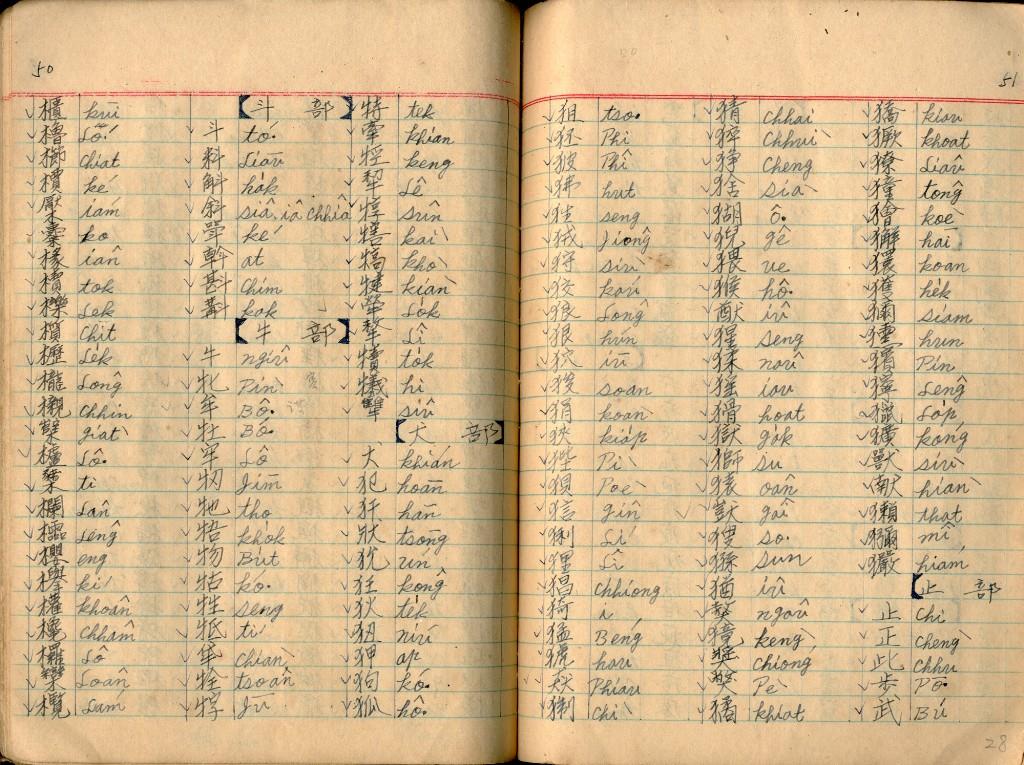 50
櫃 kūi
櫓 Ló͘
櫛 chiat
檟 ké
檿 iám
櫜 ko
櫞 iân
櫝 tok
櫟 Lek
櫍 Chit
櫪 Le̍k
櫳 Lông
櫬 Chhìn
櫱 giat
櫨 Lô͘
欄 Lân
櫺 Lêng
櫻 eng
權 khoân
欃 Chhâm
欏 Lô
欒 Loân
欖 Lám
斗 部
斗 tó͘
料 Liāu
斛 ho̍k
斜 siâ, iâ chhiâ
斝 ké
斡 at
斟 Chim
斠 kak
牛 部
牛 ngiû
牝 Pín
牟 Bô͘
牡 Bó͘
牢 Lô
牣 Jīm
牠 tho
牾 khok
物 Bu̍t
牯 kó͘
牲 seng
牴 tí
牮 Chiàn
牷 tsoân
犉 Jû
特 te̍k
牽 khian
牼 keng
犂 Lê
犉 sûn
犗 kài
犒 khò
犍 kian
犖 Lo̍k
犛 Lî
犢 to̍k
犧 hi
犨 siû
犬 部
犬 khián
犯 hoān
犴 hān
狀 tsōng
狂 kông
狄 te̍k
狃 niú
狎 ap
狗 kó͘
狐 hô͘
51
狙 tso͘
狉 Phi
狓 Phî
狒 hut
狌 seng
狨 Jiông
狩 siù
狡 káu
狼 Lông
狠 hún
狖 iū
狻 soan
狷 koàn
狹 kia̍p
狴 Pì
狽 Poè
狺 gîn
猁 Lī
狸 Lî
猖 Chhiong
猗 i
猛 Béng
猇 hau
猋 Phiau
猘 Chì
猜 Chhai
猝 Chhuì
猙 Cheng
猞 sià
猢 ô͘
猊 gê
猥 ue
猴 hô͘
猷 iû
猩 seng
猱 naû
猺 iau
猾 hoat
獄 ga̍k
獅 su
猿 oân
獃 gâi
獀 so͘
猻 sun
猶 iû
獒 ngaû
獍 kèng
獎 chióng
獘 Pè
獝 khiat
獢 kiau
獗 khoat
獠 Liâu
獞 tông
獪 koè
獬 hāi
獧 koan
獲 he̍k
獮 siám
獯 hun
獱 Pin
獰 Lêng
獵 La̍p
獷 kóng
獸 siù
獻 hiàn
獺 that
獼 mî
玁 hiám
止 部
止 Chí
正 Chèng
此 Chhú
步 Pō͘
武 Bú
28